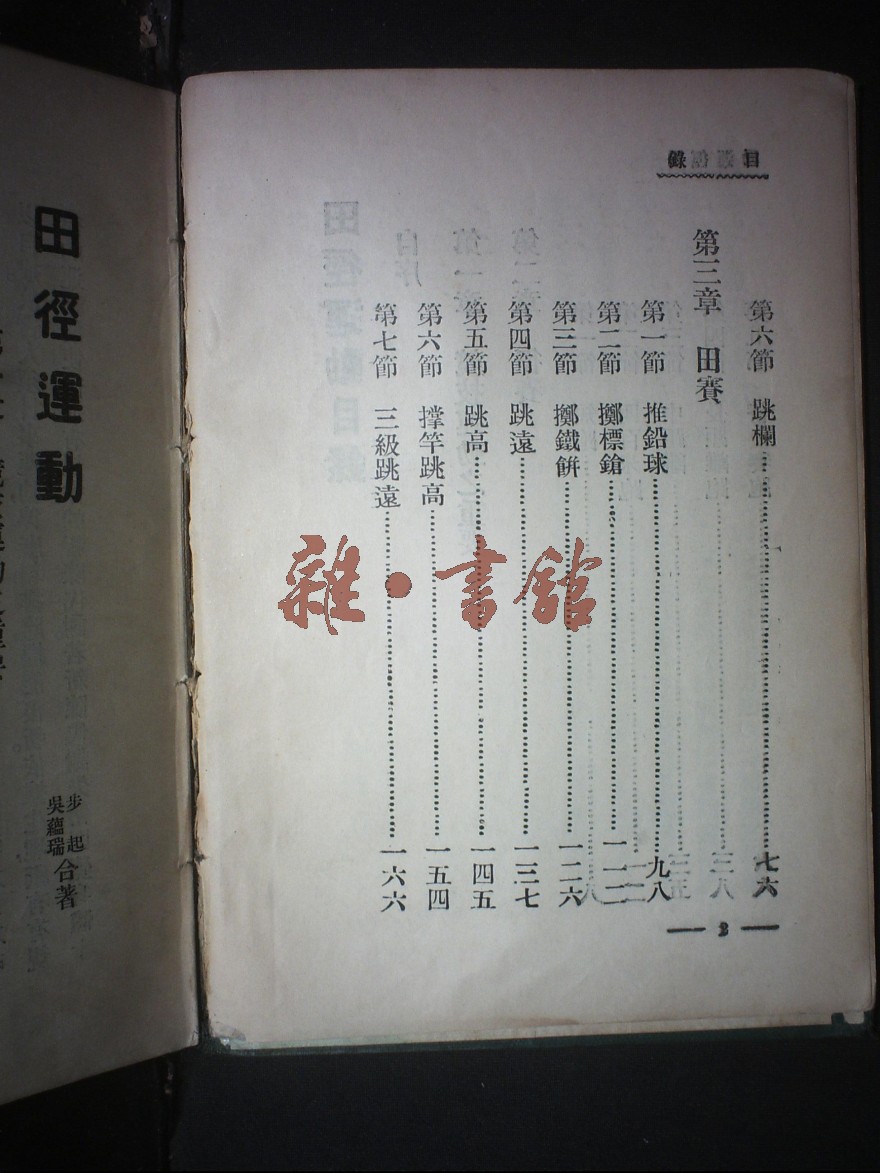 目錄
第六節 跳欄……七六
第三章 田賽
第一節 推鉛球……九八
第二節 擲標鎗……一一二
第三節 擲鐵餅……一二六
第四節 跳遠……一三七
第五節 跳高……一四五
第六節 撑竿跳高……一五四
第七節 三級跳遠……一六六
2
田徑運動
步起
吳蘊瑞
合著
雜·書館